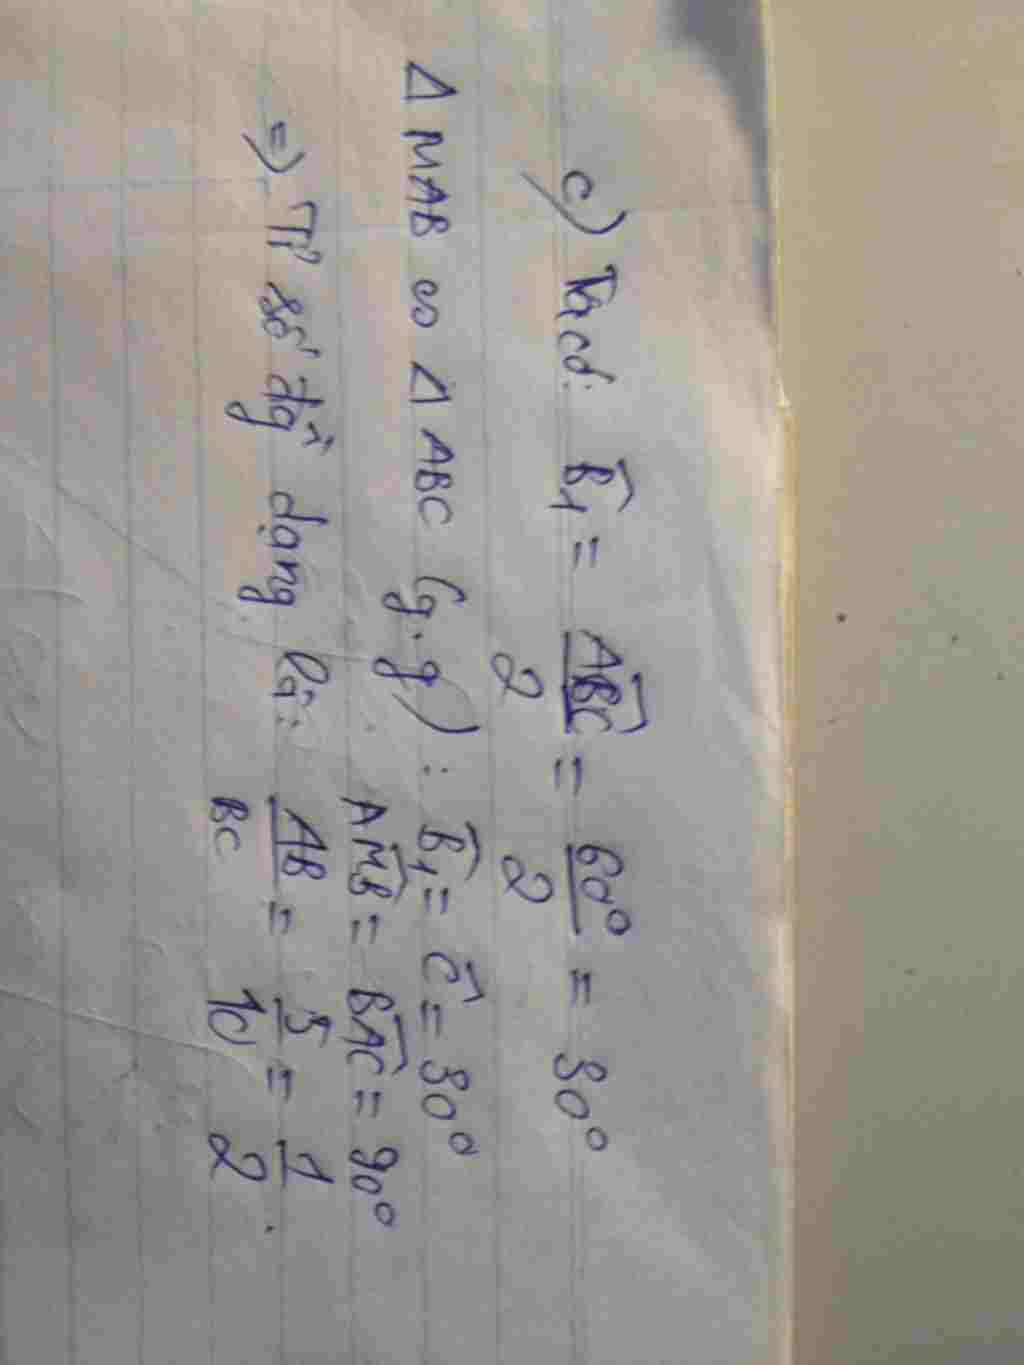 c) Ta có: B̂₁ = ABC/2 = 60°/2 = 30°
Δ MAB ∽ Δ ABC (g.g): B̂₁ = Ĉ = 30°
AMB = BAC = 90°
=) Tỉ số đg̀ dạng là: AB/BC = 5/10 = 1/2.